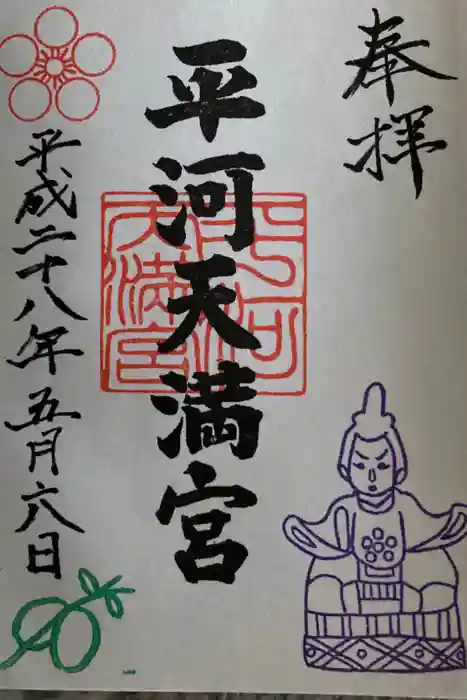 奉拝
平河天満宮
平河
天満宮
平成二十八年五月六日